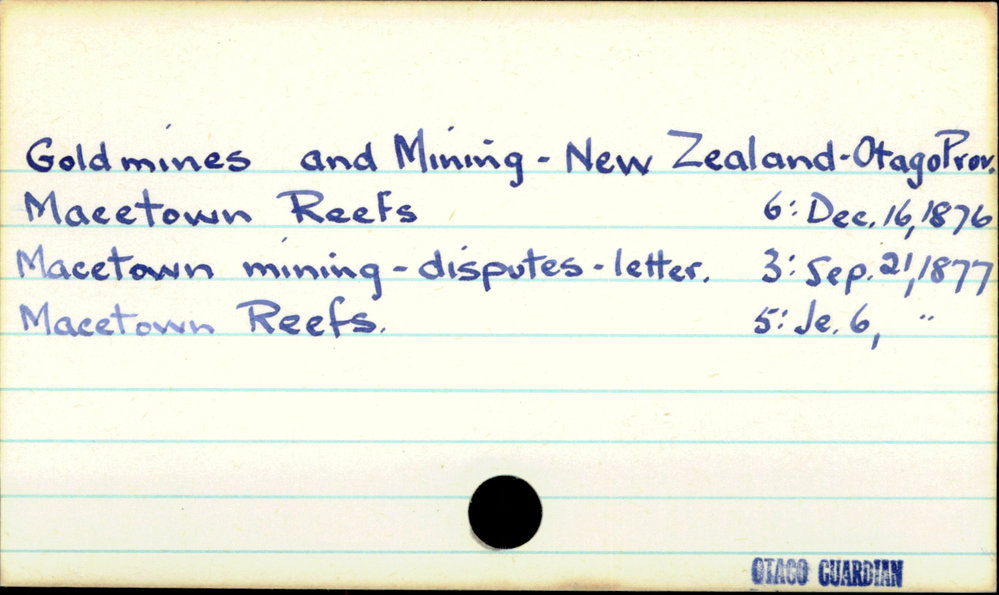 Goldmines and Mining - New Zealand - Otago Prov.
Macetown Reefs 6: Dec. 16, 1876
Macetown mining - disputes - letter. 3: Sep. 21, 1877
Macetown Reefs. 5: Je. 6, "
OTAGO GUARDIAN